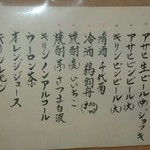 アサヒ生ビール(中)ジョッキ
アサヒビンビール(大)
キリンビンビール(大)
清酒 千代菊
冷酒
焼酎麦 いいちこ
焼酎芋 さつま白波
キリンノンアルコール
ウーロン茶
オレンジジュース
キリンレモン